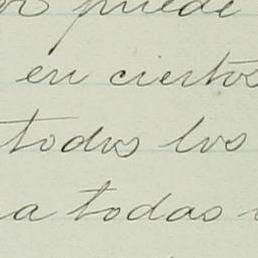 puede
en ciertos
todos los
a todas